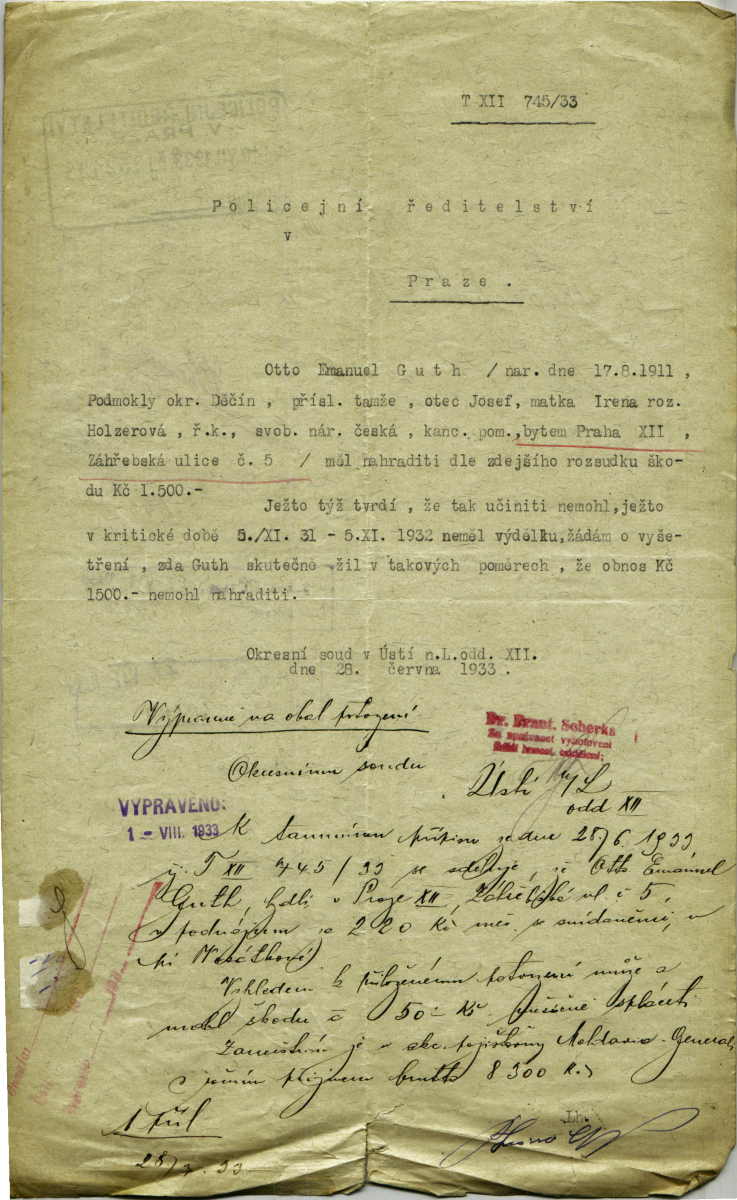 T XII 745/33
Policejní ředitelství
v
Praze.
Otto Emanuel Guth / nar. dne 17.8.1911 ,
Podmokly okr. Děčín , přísl. tamže , otec Josef, matka Irena roz.
Holzerová , ř.k., svob. nár. česká , kanc. pom.,bytem Praha XII ,
Záhřebská ulice č. 5 / měl nahraditi dle zdejšího rozsudku ško-
du Kč 1.500.-
Ježto týž tvrdí , že tak učiniti nemohl,ježto
v kritické době 5./XI. 31 - 5.XI. 1932 neměl výdělku,žádám o vyše-
tření , zda Guth skutečně žil v takových poměrech , že obnos Kč
1500.- nemohl nahraditi.
Okresní soud v Ústí n.L.odd. XII.
dne 28. června 1933 .
na obal
Dr. Frant. Soherka
Za správnost vyhotovení
Okresnímu soudu
Ústí n/L
odd XII
VYPRAVENO:
1 - VIII. 1933
K přípisu ze dne 28/6 1933
T XII 745/33 se sděluje, že Otto Emanuel
Guth, bydlí v Praze XII, Záhřebská ul. č 5,
v podnájmu za 220 Kč měs. se snídaněmi, u
Vzhledem k přiloženému potvrzení může a
mohl škodu à 50.- Kč měsíčně spláceti
Zaměstnán je v akc. pojišťovny Moldavia-Generali
s ročním příjmem brutto 8300 Kč
1 příl
28/7. 33